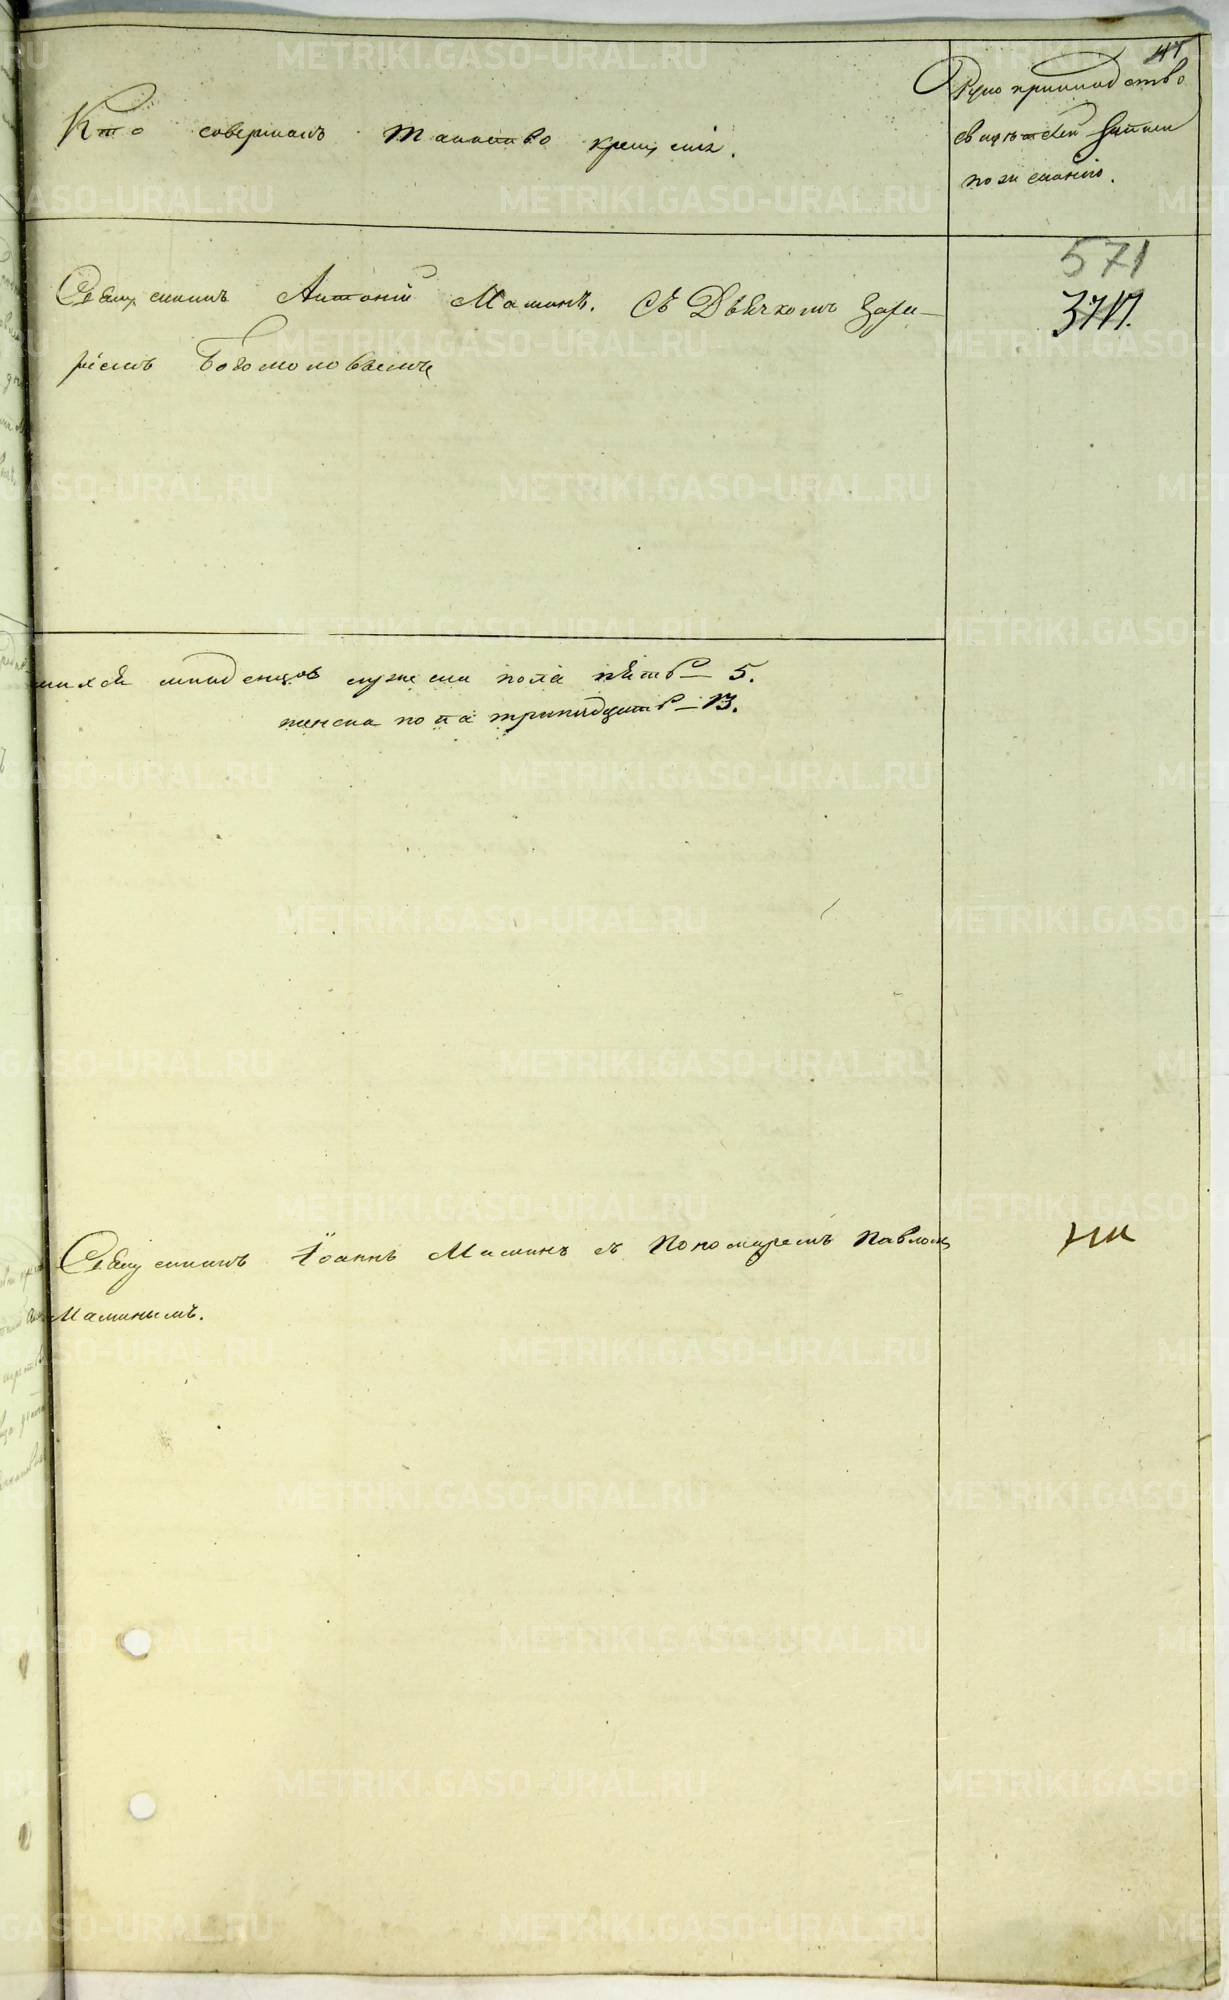 Кто совершалъ таинство крещенія.
Рукоприкладство
свидѣтелей записи
по желанію.
571
Священникъ Антоній Маминъ. Съ Дьячкомъ Заха-
ріемъ Богомоловымъ
шихся младенцовъ мужеска пола пять — 5.
женска пола тринадцать — 13.
Священникъ Іоаннъ Маминъ съ Пономаремъ Павломъ
Маминымъ.
METRIKI.GASO-URAL.RU